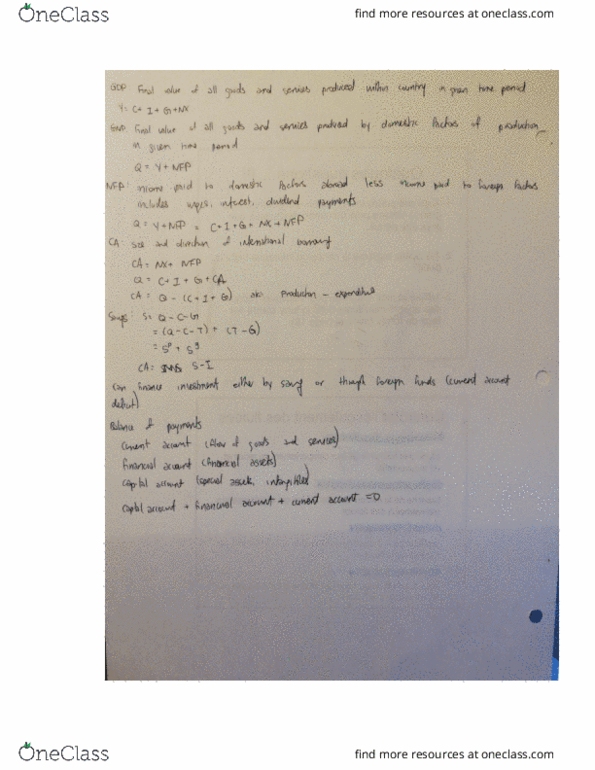 OneClass
find more resources at oneclass.com
GDP: Final value of all goods and services produced within country in given time period
Y = C + I + G + NX
GNP: Final value of all goods and services produced by domestic factors of production
in given time period
Q = Y + NFP
NFP: income paid to domestic factors abroad less income paid to foreign factors
includes wages, interest, dividend payments
Q = Y + NFP = C + I + G + NX + NFP
CA: size and direction of international borrowing
CA = NX + NFP
Q = C + I + G + CA
CA = Q - (C + I + G) aka production - expenditure
Savings: S = Q - C - G
= (Q - C - T) + (T - G)
= Sᵖ + Sᵍ
CA = S - I
Can finance investment either by saving or through foreign funds (current account
deficit)
Balance of payments
Current account (flow of goods and services)
Financial account (financial assets)
Capital account (special assets, intangibles)
capital account + financial account + current account = 0
OneClass
find more resources at oneclass.com